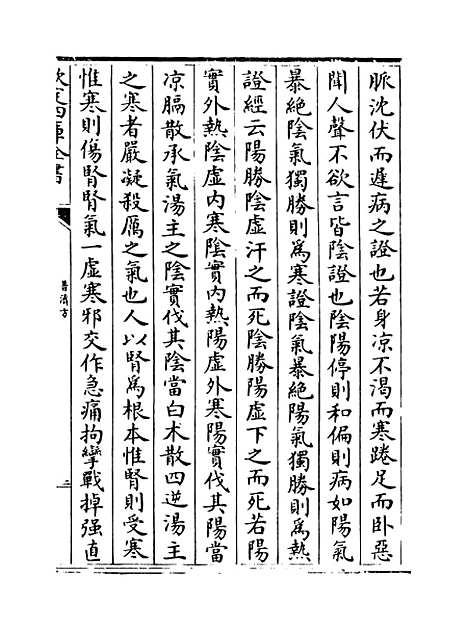 脈沈伏而遲病之證也若身凉不渴而寒踡足而卧惡
聞人聲不欲言皆陰證也陰陽停則和偏則病如陽氣
暴絶陰氣獨勝則爲寒證陰氣暴絶陽氣獨勝則爲熱
證經云陽勝陰虚汗之而死陰勝陽虚下之而死若陽
實外熱陰虚内寒陰實内熱陽虚外寒陽實伐其陽當
凉膈散承氣湯主之陰實伐其陰當白术散四逆湯主
之寒者嚴凝殺厲之氣也人以腎爲根本惟腎則受寒
惟寒則傷腎腎氣一虚寒邪交作急痛拘攣戰掉强直
欽定四庫全書
普濟方
二